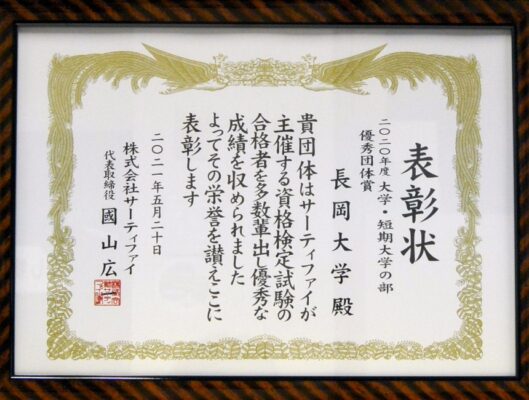 表彰状
二〇二〇年度 大学・短期大学の部
優秀団体賞
長岡大学殿
貴団体はサーティファイが
主催する資格検定試験の
合格者を多数輩出し優秀な
成績を収められました
よってその栄誉を讃えここに
表彰します
二〇二一年五月二十日
株式会社サーティファイ
代表取締役 國山広